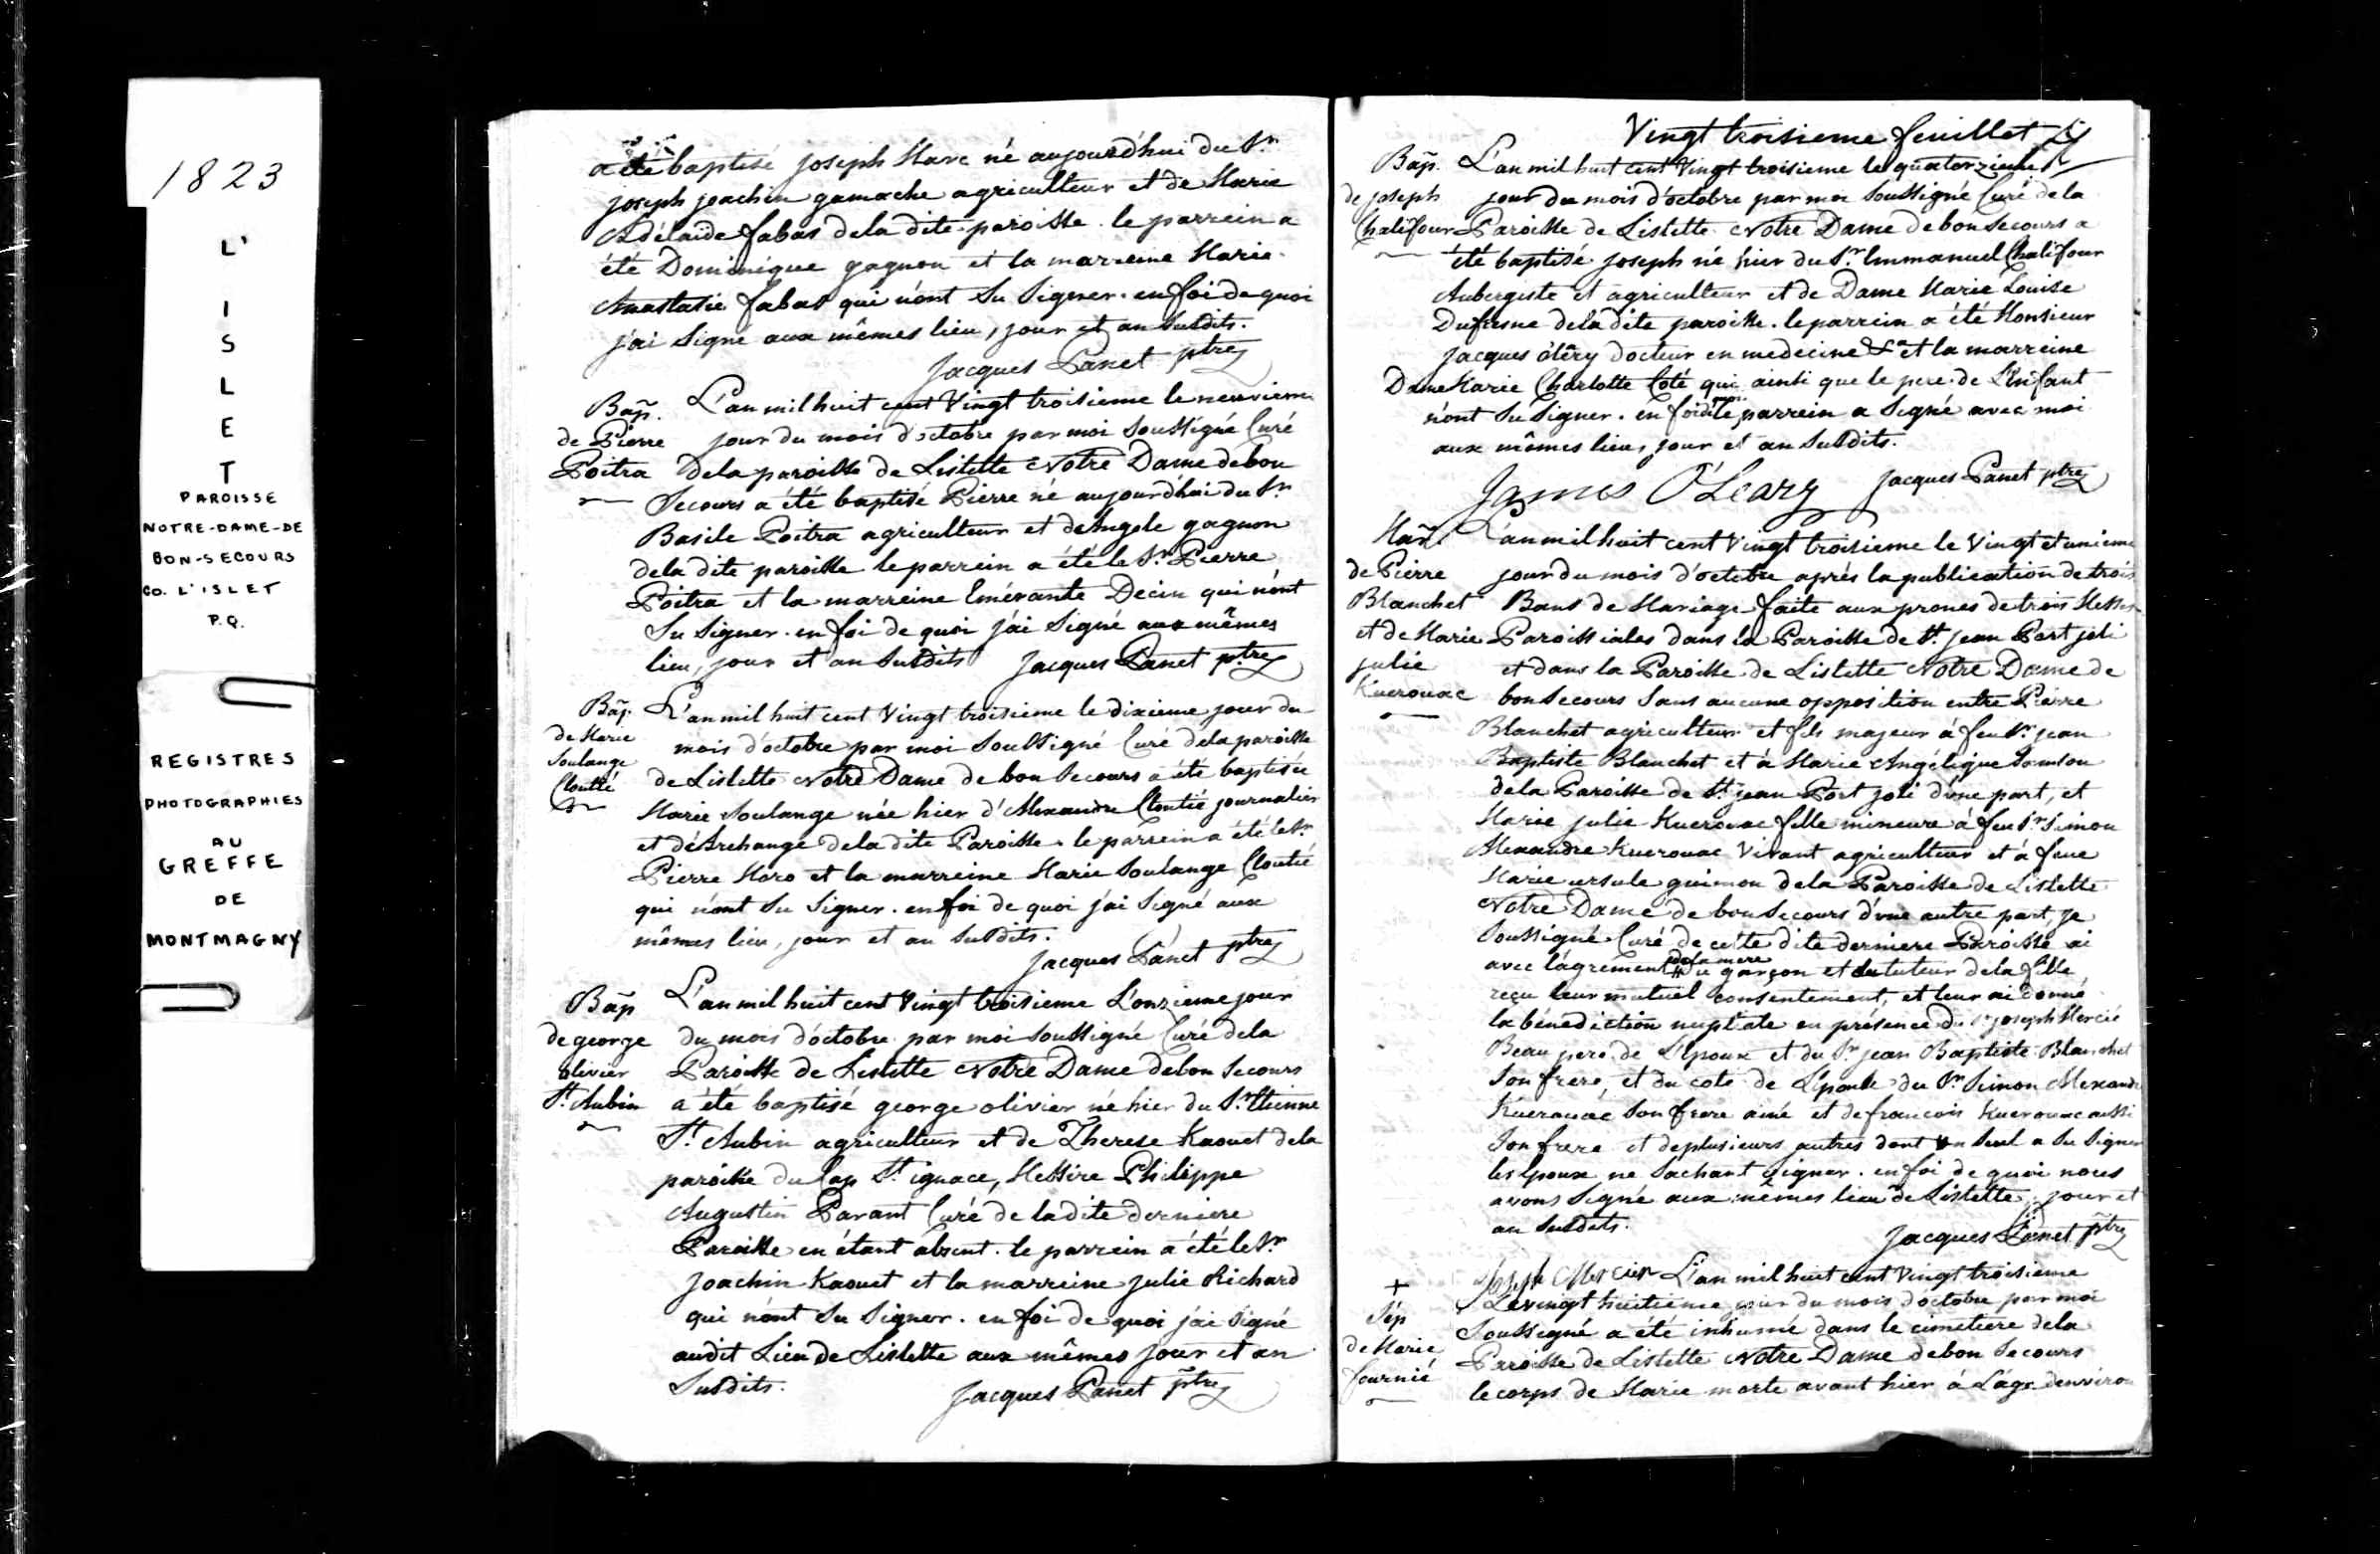 1823
L'
I
S
L
E
T
PAROISSE
NOTRE-DAME-DE
BON-SECOURS
CO. L'ISLET
P.Q.
REGISTRES
PHOTOGRAPHIES
AU
GREFFE
DE
MONTMAGNY
a été baptisé joseph Marc né aujourd'hui du Sr.
joseph joachin gamache agriculteur et de Marie
Adélaïde fabas dela dite paroisse. le parrein a
été Dominique gagnon et la marreine Marie
Anastasie fabas qui n'ont su signer. en foi de quoi
j'ai signé aux mêmes lieu, jour et an susdits.
Jacques Panet ptre
Bap. L'an mil huit cent Vingt troisieme le neuvieme
de Pierre jour du mois d'octobre par moi soussigné Curé
Poitra dela paroisse de Lislette Notre Dame debon
Secours a été baptisé Pierre né aujourd'hui du Sr
Basile Poitra agriculteur et de Angele gagnon
dela dite paroisse le parrein a été le Sr. Pierre
Poitra et la marreine Emérante Decin qui n'ont
su signer. en foi de quoi j'ai signé aux mêmes
lieu, jour et an susdits Jacques Panet ptre
Bap. L'an mil huit cent Vingt troisieme le dixieme jour du
de Marie mois d'octobre par moi soussigné Curé dela paroisse
Soulange de Lislette Notre Dame de bon Secours a été baptisée
Cloutié Marie Soulange née hier d'Alexandre Cloutié journalier
et d'Archange dela dite Paroisse. le parrein a été le Sr
Pierre Moro et la marreine Marie Soulange Cloutié
qui n'ont su signer. en foi de quoi j'ai signé aux
mêmes lieu, jour et an susdits.
Jacques Panet ptre
Bap L'an mil huit cent Vingt troisieme L'onzieme jour
de george du mois d'octobre par moi soussigné Curé dela
olivier Paroisse de Lislette Notre Dame debon Secours
St. Aubin a été baptisé george olivier né hier du Sr. Etienne
St. Aubin agriculteur et de Therese Kaouet dela
paroisse du Cap St. ignace, Messire Philippe
Augustin Parant Curé de la dite derniere
Paroisse en étant absent. le parrein a été le Sr
joachin Kaouet et la marreine julie Richard
qui n'ont su signer. en foi de quoi j'ai signé
audit Lieu de Lislette aux mêmes jour et an
susdits. Jacques Panet ptre
Vingt troisieme feuillet
Bap. L'an mil huit cent Vingt troisieme le quatorzieme
de joseph jour du mois d'octobre par moi soussigné Curé dela
Chalifour Paroisse de Lislette Notre Dame debon Secours a
été baptisé joseph né hier du Sr. Emmanuel Chalifour
Aubergiste et agriculteur et de Dame Marie Louise
Dufresne dela dite paroisse. le parrein a été Monsieur
jacques ôlêry docteur en medecine &a et la marreine
Dame Marie Charlotte Coté qui ainsi que le pere de L'Enfant
n'ont su signer. en foi de quoi le parrein a signé avec moi
aux mêmes lieu, jour et an susdits.
James O'Leary Jacques Panet ptre
Mar. L'an mil huit cent Vingt troisieme le Vingt et unieme
de Pierre jour du mois d'octobre après la publication de trois
Blanchet Bans de Mariage faite aux prones de trois Messes
et de Marie Paroissiales dans la Paroisse de St. jean Port joli
julie et dans la Paroisse de Lislette Notre Dame de
Kuerouac bon Secours sans aucune opposition entre Pierre
Blanchet agriculteur et fils majeur à feu Sr. jean
Baptiste Blanchet et à Marie Angélique Samson
dela Paroisse de St. jean Port joli d'une part, et
Marie julie Kuerouac fille mineure à feu Sr. Simon
Alexandre Kuerouac Vivant agriculteur et à feue
Marie ursule guimon dela Paroisse de Lislette
Notre Dame de bon Secours d'une autre part, je
soussigné Curé de cette dite derniere Paroisse ai
avec l'agrement de la mere du garçon et du tuteur dela fille
reçu leur mutuel consentement, et leur ai donné
la bénédiction nuptiale en présence du Sr joseph Mercié
Beau pere de L'Epoux et du Sr jean Baptiste Blanchet
son frere, et du coté de L'Epouse du Sr Simon Alexandre
Kuerouac son frere ainé et de francois Kuerouac aussi
son frere et de plusieurs autres dont un seul a su signer
les Epoux ne sachant signer. en foi de quoi nous
avons signé aux mêmes lieu de Lislette, jour et
an susdits. Jacques Panet ptre
Joseph Mercier L'an mil huit cent Vingt troisieme
+ Le vingt huitieme jour du mois d'octobre par moi
Sép soussigné a été inhumé dans le cimetiere dela
de Marie Paroisse de Lislette Notre Dame debon Secours
fournié le corps de Marie morte avant hier à L'âge d'environ